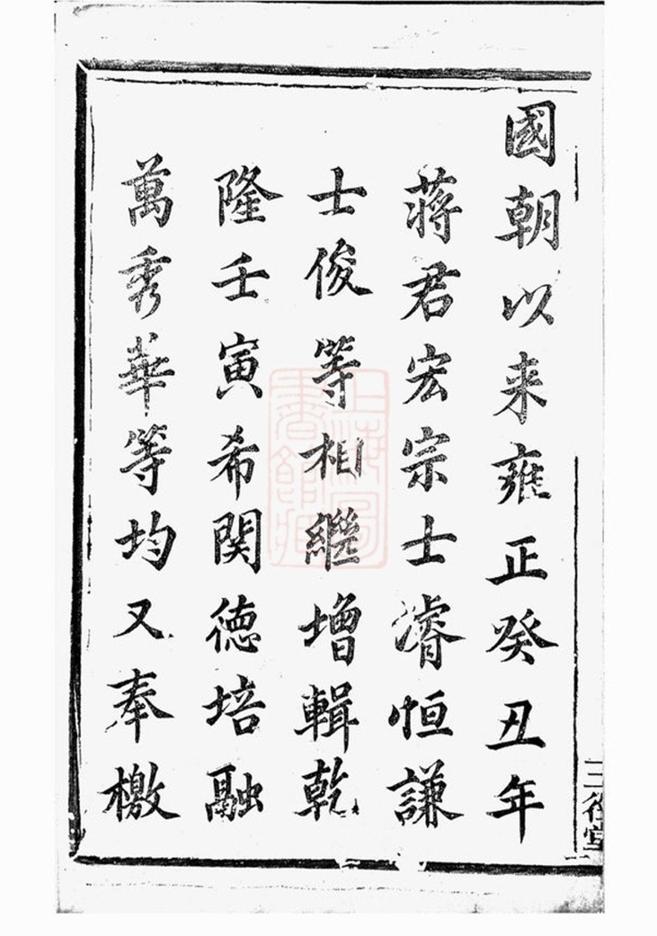 國朝以来雍正癸丑年
蔣君宏宗士濬恒謙
士俊等相繼增輯乾
隆壬寅希関德培融
萬秀華等均又奉檄
上海圖書館藏